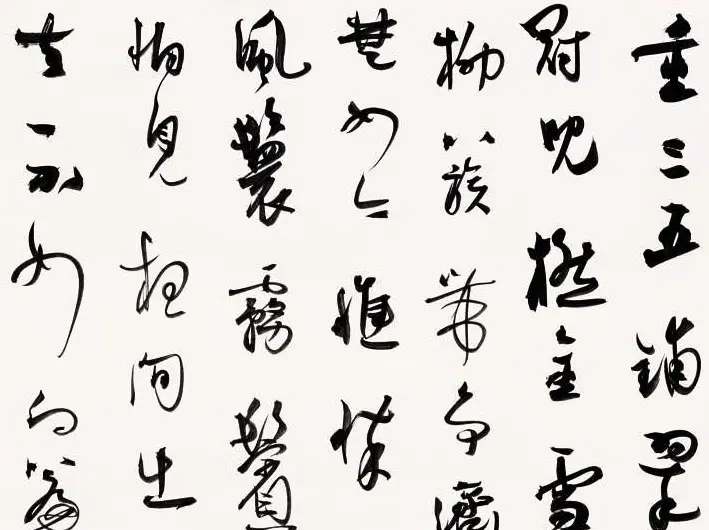 重三五鋪翠
冠兒撚金雪
柳簇帶爭濟
楚如今憔悴
風鬟霧鬢
怕見夜間出
去不如向簾